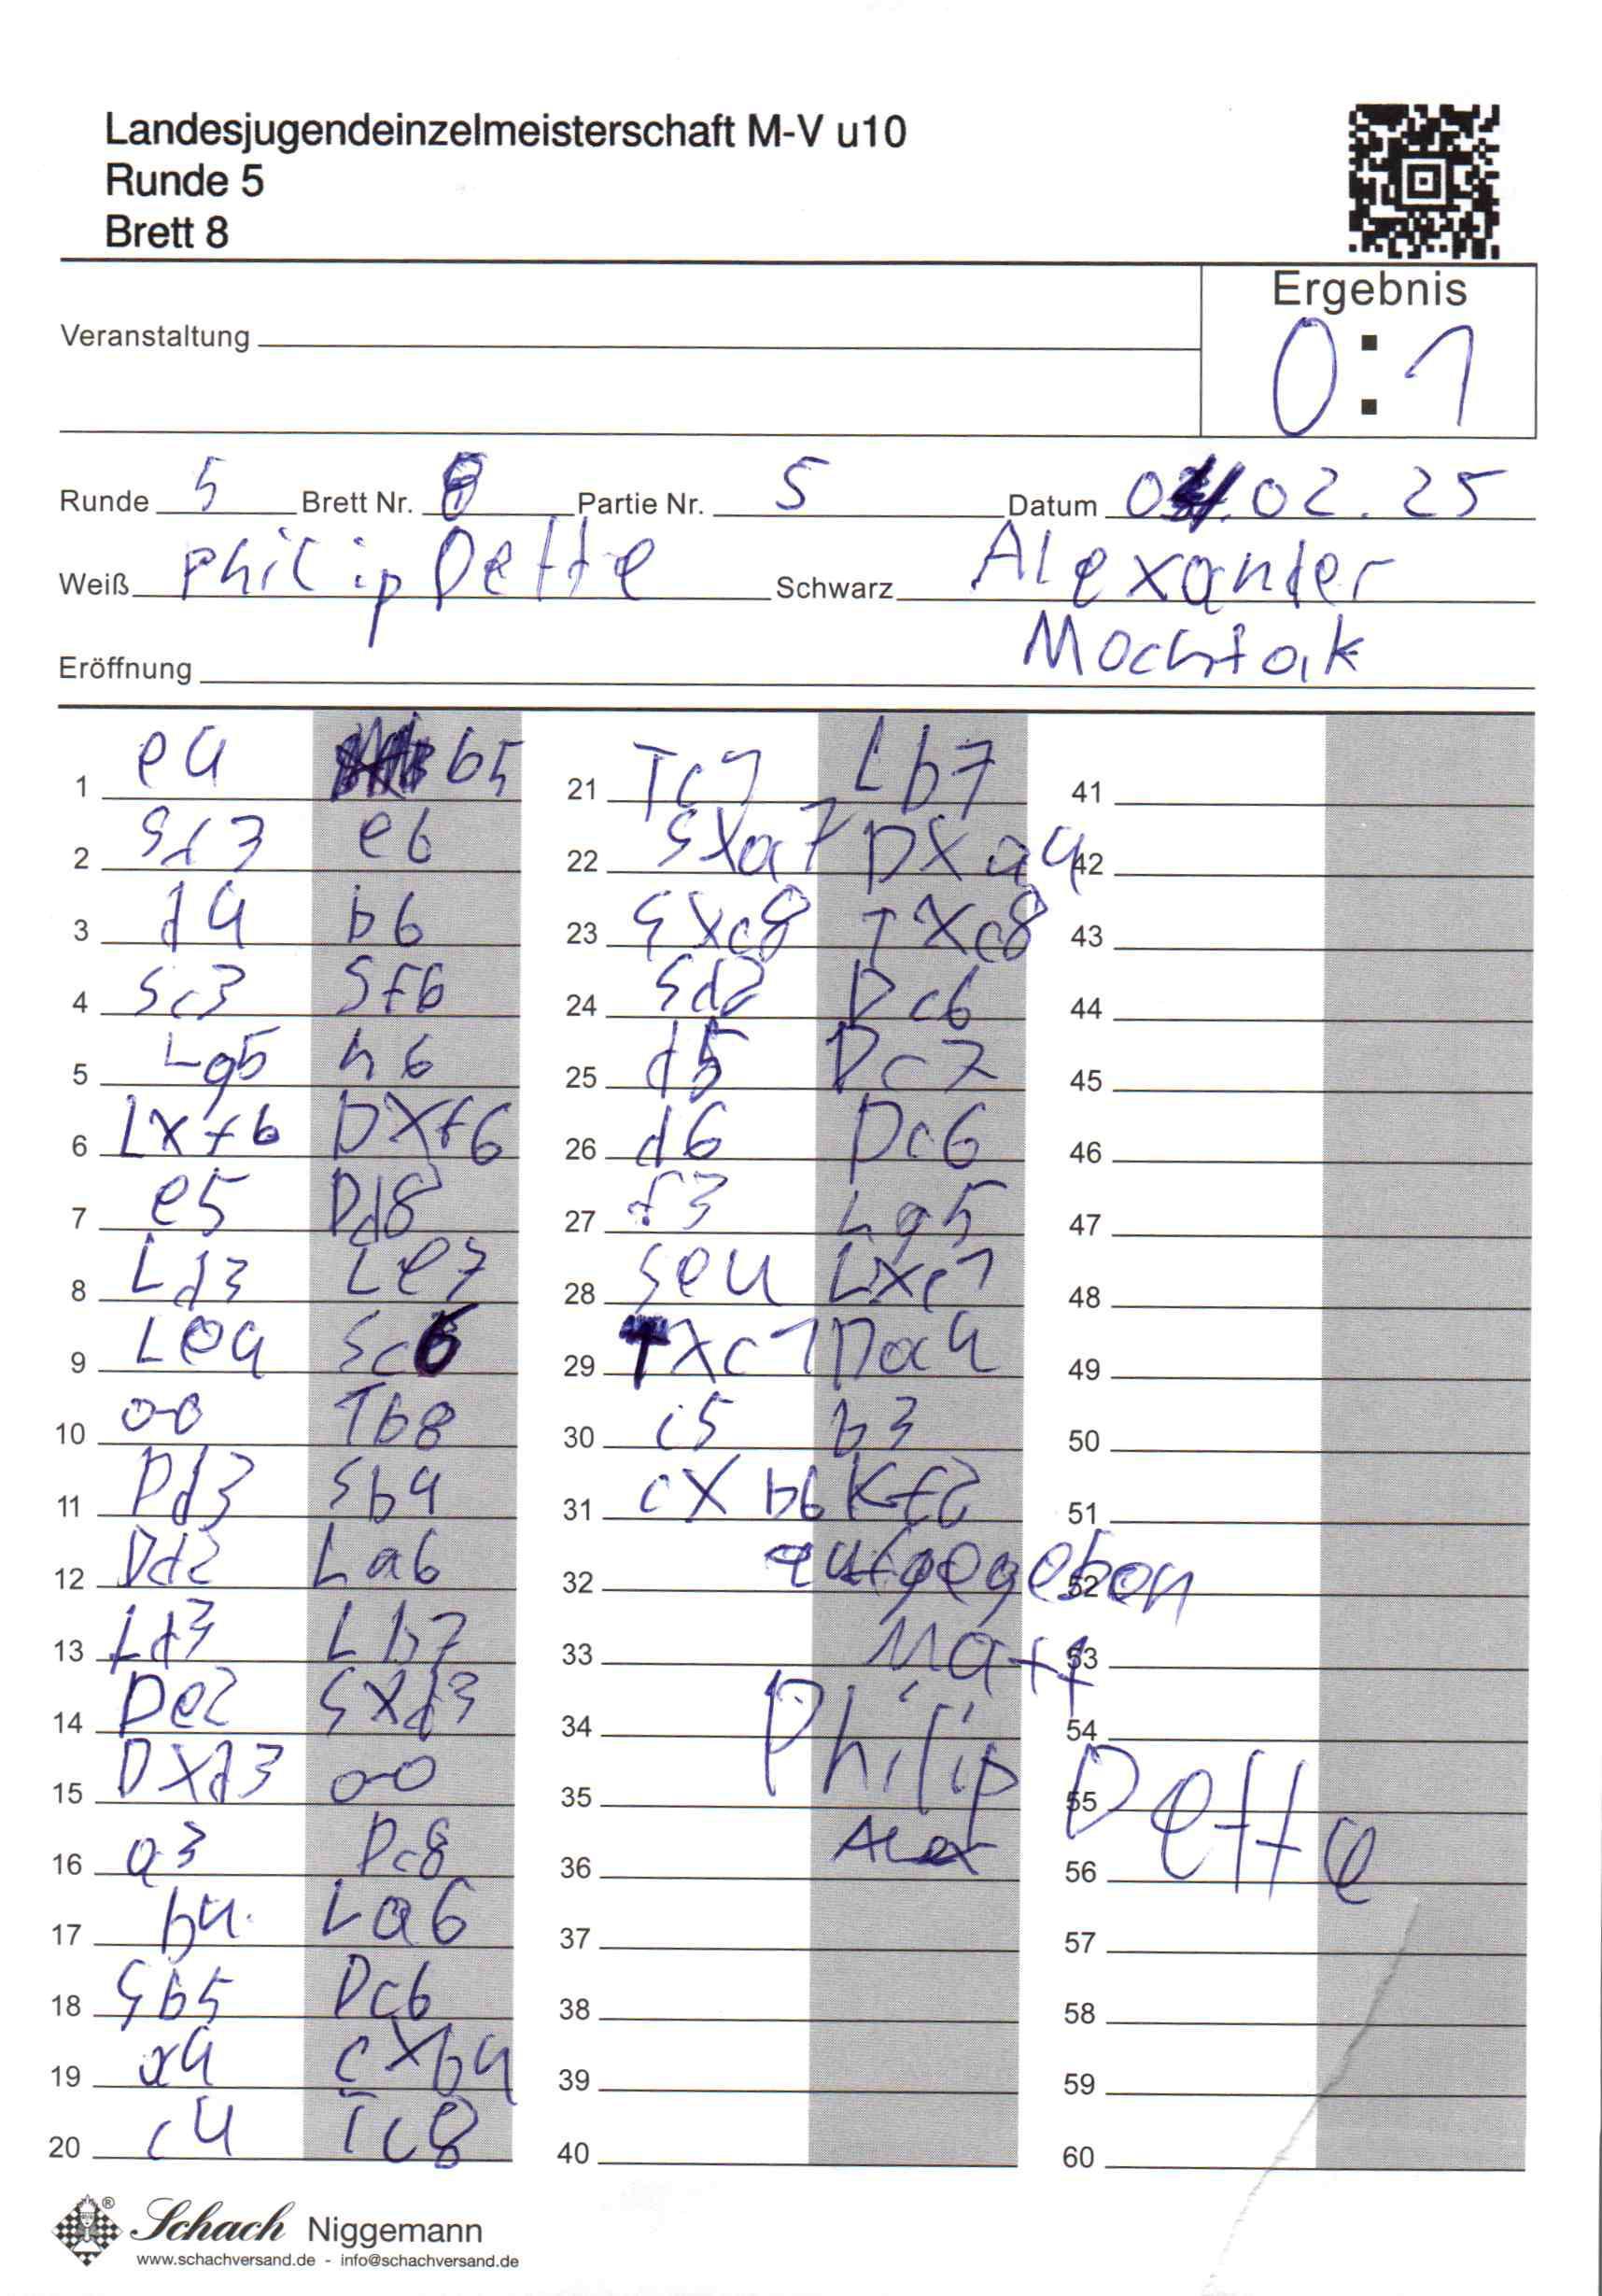 Landesjugendeinzelmeisterschaft M-V u10
Runde 5
Brett 8
Ergebnis
0:1
Veranstaltung
Runde 5 Brett Nr. 8 Partie Nr. 5 Datum 01.02.25
Weiß Philip Dette Schwarz Alexander
Mochtak
Eröffnung
1 e4 b5
2 Sf3 e6
3 d4 b6
4 Sc3 Sf6
5 Lg5 h6
6 LXf6 DXf6
7 e5 Dd8
8 Ld3 Le7
9 Le4 Sc6
10 0-0 Tb8
11 Dd3 Sb4
12 Dd2 La6
13 Ld3 Lb7
14 De2 SXd3
15 DXd3 0-0
16 a3 Dc8
17 b4 La6
18 Sb5 Dc6
19 a4 cXb4
20 c4 Tc8
21 Tc1 Lb7
22 SXa7 DXa4
23 SXc8 TXc8
24 Sd2 Dc6
25 d5 Dc7
26 d6 Dc6
27 f3 Lg5
28 Se4 LXc1
29 TXc1 Da4
30 c5 b3
31 cXb6 Kf2
32 aufgegeben
33 Matt
34 Philip Dette
35
36 Alex
37
38
39
40
41
42
43
44
45
46
47
48
49
50
51
52
53
54
55
56
57
58
59
60
Schach Niggemann
www.schachversand.de - info@schachversand.de